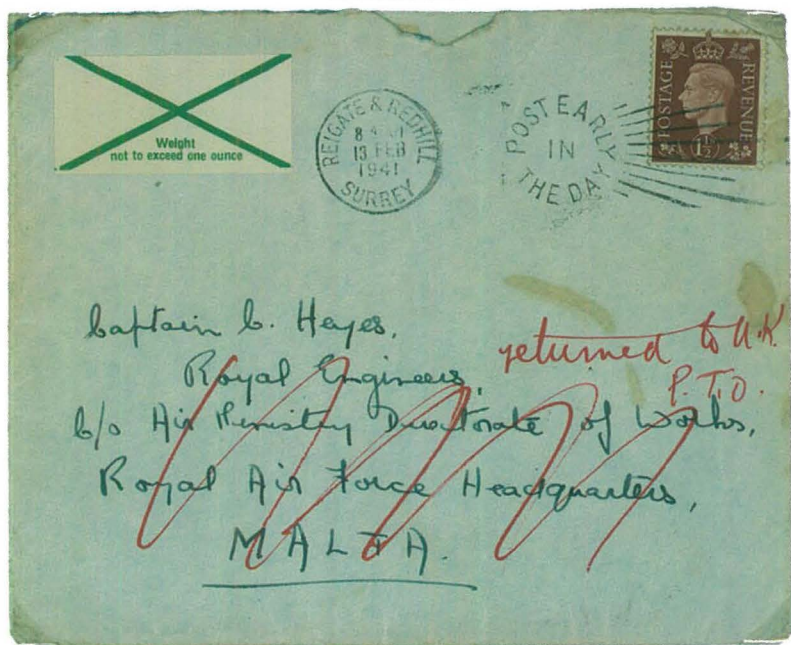 Weight
not to exceed one ounce
REIGATE & REDHILL
13 FEB
1941
SURREY
POST EARLY
IN
THE DAY
POSTAGE REVENUE
1½
Captain C. Hayes,
Royal Engineers,
returned to U.K.
P.T.O.
C/o Air Ministry Directorate of Works,
Royal Air Force Headquarters,
MALTA.